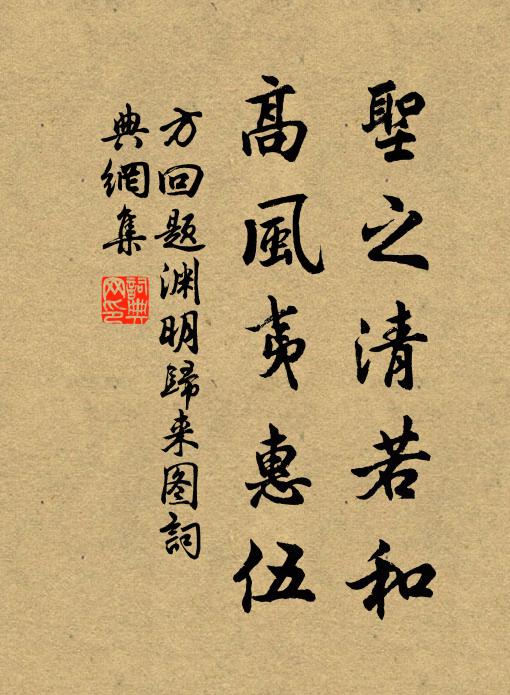 聖之清若和
高風夷惠伍
方回題渊明歸来图詞
典網集
詞典
网印